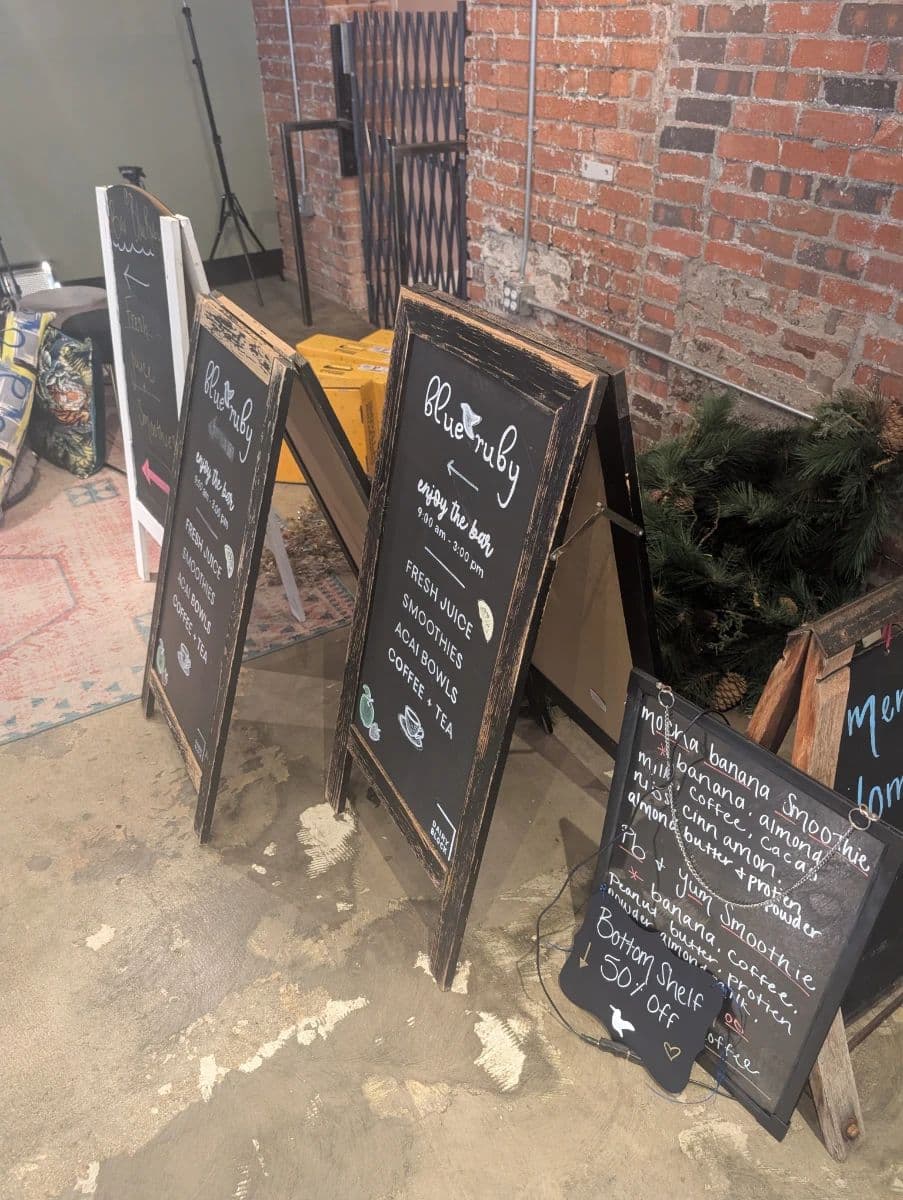 Fresh
Juice
Smoothies
blue ruby
enjoy the bar
9:00 am - 3:00 pm
FRESH JUICE
SMOOTHIES
ACAI BOWLS
COFFEE + TEA
blue ruby
enjoy the bar
9:00 am - 3:00 pm
FRESH JUICE
SMOOTHIES
ACAI BOWLS
COFFEE + TEA
DAIRY
BLOCK
mocha banana Smoothie
* banana, almond
milk, coffee, cacao
cinnamon,
almond butter + protien
powder
Pb & Yum Smoothie
* banana, coffee,
Peanut butter, protien
powder, almond milk.
coffee
Bottom Shelf
↓ 50% Off
Men